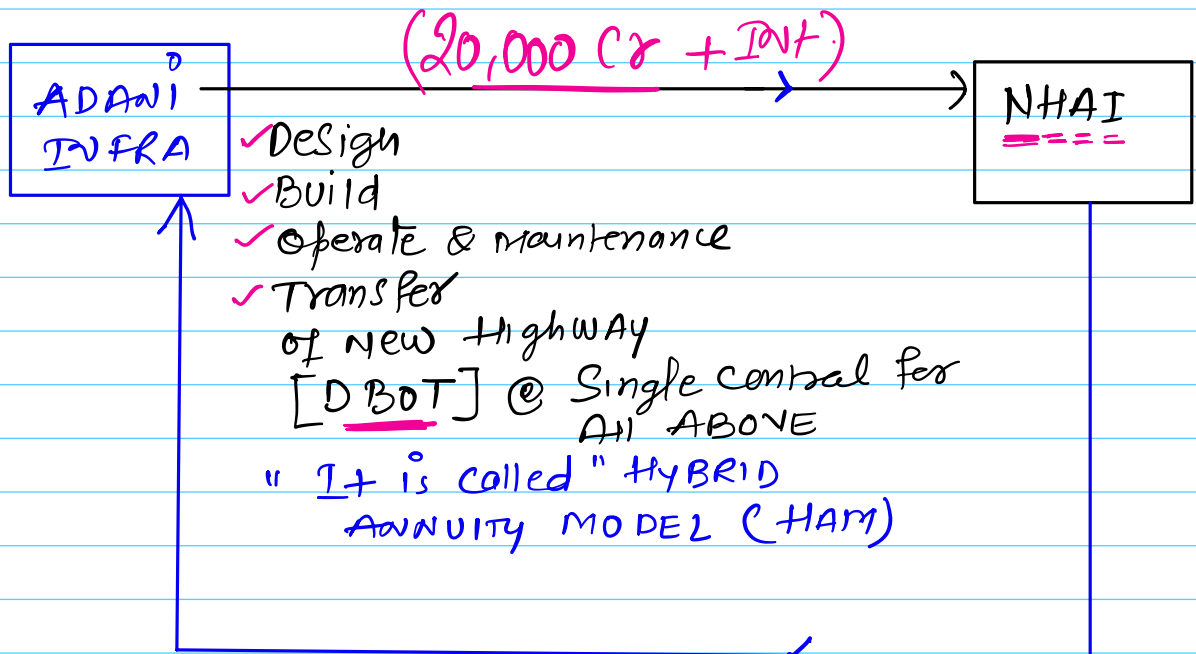 (20,000 Cr + Int.)
ADANI
INFRA
NHAI
Design
Build
Operate & Maintenance
Transfer
of New Highway
[DBOT] @ Single Contral for
All ABOVE
" It is called " HYBRID
ANNUITY MODEL (HAM)